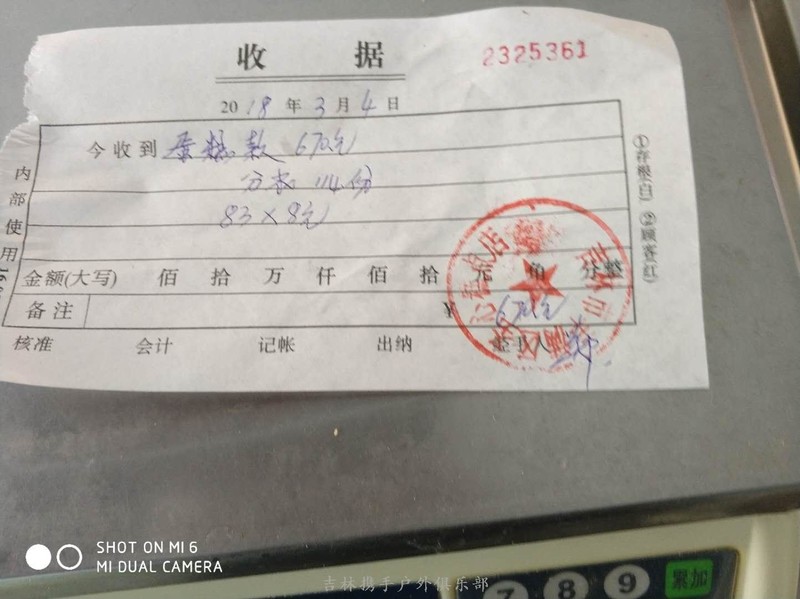 收 据
2325361
2018年3月4日
今收到 蛋糕款 670元
114份
83×8元
金额(大写) 佰 拾 万 仟 佰 拾 元 角 分整
备注 ¥ 670元
核准 会计 记帐 出纳 经手人
内部使用
①存根(白) ②顾客(红)
SHOT ON MI 6
MI DUAL CAMERA
吉林携手户外俱乐部
7 8 9 累加